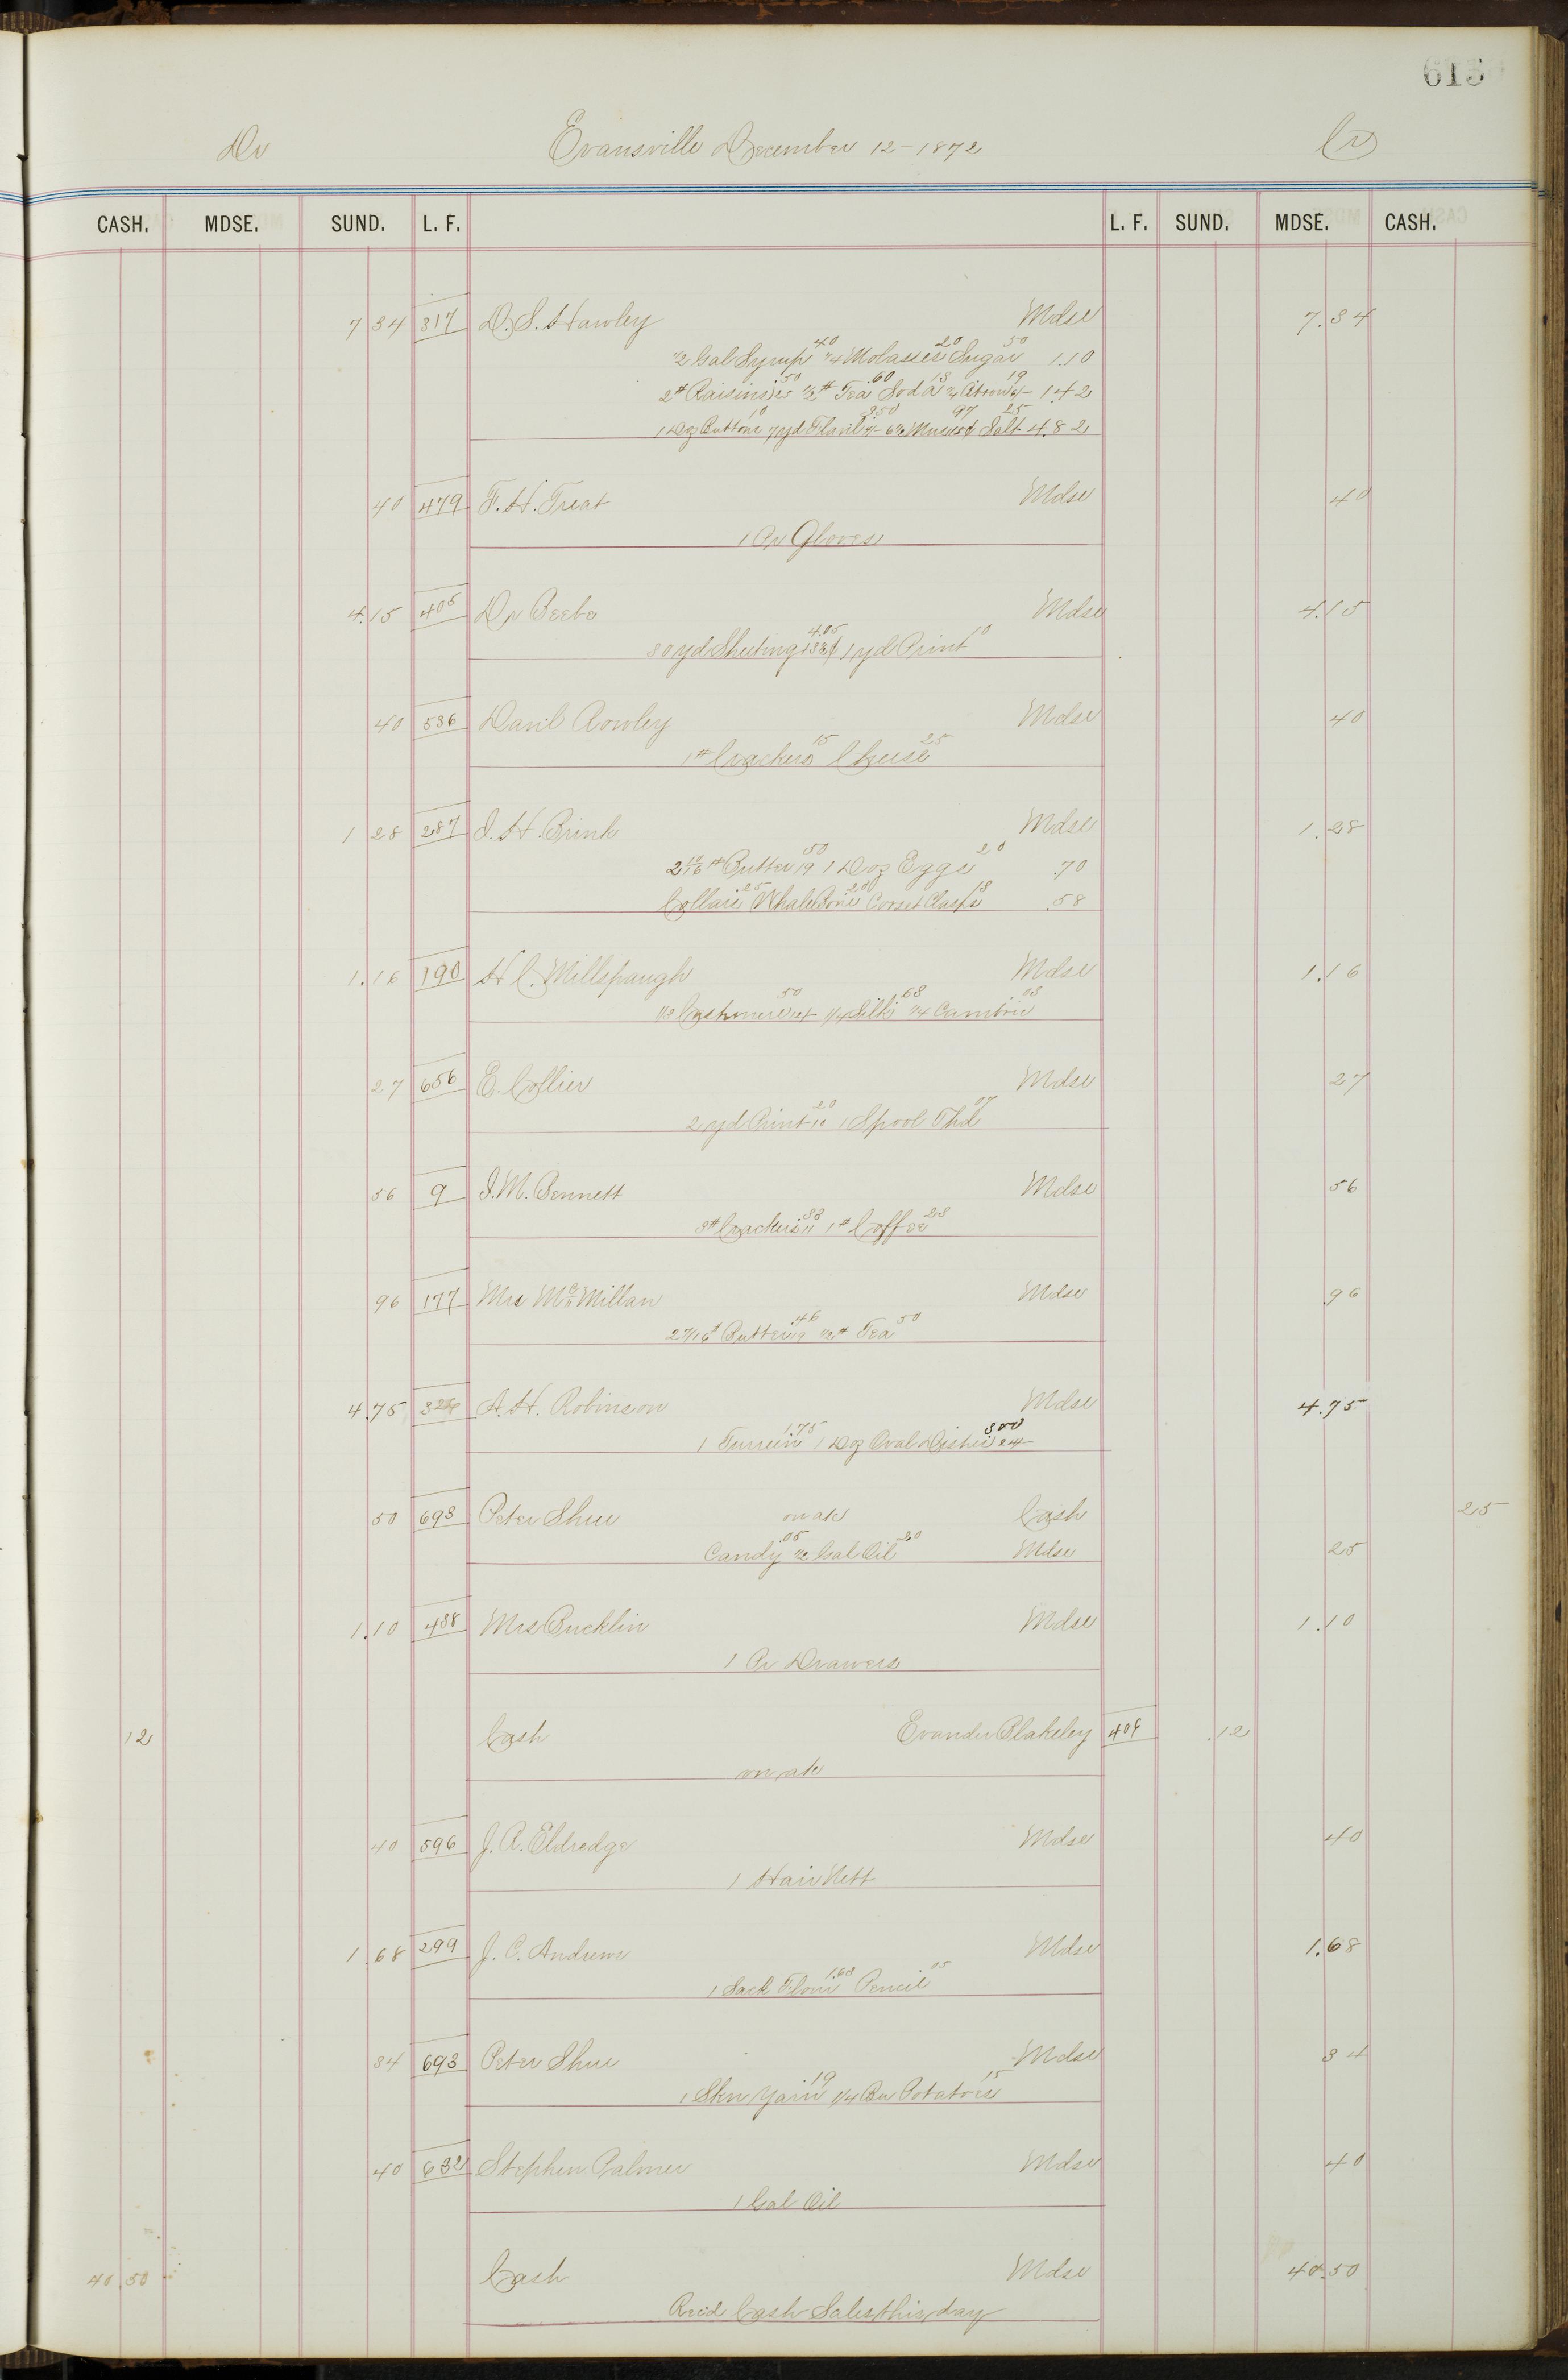 615
Dr Evansville December 12-1872 Cr
CASH. MDSE. SUND. L. F. L. F. SUND. MDSE. CASH.
7 34 317 D. S. Hawley Mdse 7.34
1/2 Gal Syrup 40 1/4 Molasses 20 Sugar 50 1.10
2# Raisins 25 .50 1/2# Tea .60 Soda 13 19 1.42
1 Doz Buttons 10 7 yd 3.50 97 Salt 25 4.82
40 479 F. H. Treat Mdse 40
1 Pr Gloves
4.15 405 Dr Beebe Mdse 4.15
30 yd Sheeting 13½¢ 4.05 1 yd Print 10
40 536 Danl Rowley Mdse 40
1# Crackers 15 Cheese 25
1 28 287 I. H. Brink Mdse 1.28
2 10/16# Butter 19 50 1 Doz Eggs 20 .70
Collars 25 Whale Bone 20 Corset Clasps 13 .58
1.16 190 H C. Millspaugh Mdse 1.16
Cashmere 50 1/4 Silk 63 1/4 Cambric 03
27 656 E. Collier Mdse 27
2 yd Print 10 20 1 Spool Thd 07
56 9 I. M. Bennett Mdse 56
3# Crackers 11 33 1# Coffee 23
96 177 Mrs McMillan Mdse .96
2 7/16# Butter 19 .46 1/2# Tea 50
4.75 326 A. H. Robinson Mdse 4.75
1 Turreen 1.75 1 Doz Oval Dishes 2/ 3.00
50 693 Peter Shue on a/c Cash 25
Candy .05 1/2 Gal Oil 20 Mdse 25
1.10 438 Mrs Bucklin Mdse 1.10
1 Pr Drawers
12 Cash Evander Blakeley 409 .12
on a/c
40 596 J. R. Eldredge Mdse 40
1 Hair Nett
1 68 299 J. C. Andrews Mdse 1.68
1 Sack Flour 1.63 Pencil 05
34 693 Peter Shue Mdse 34
1 Skn Yarn 19 1/4 Bu Potatoes 15
40 632 Stephen Palmer Mdse 40
1 Gal Oil
40.50 Cash Mdse 40.50
Recd Cash Sales this day